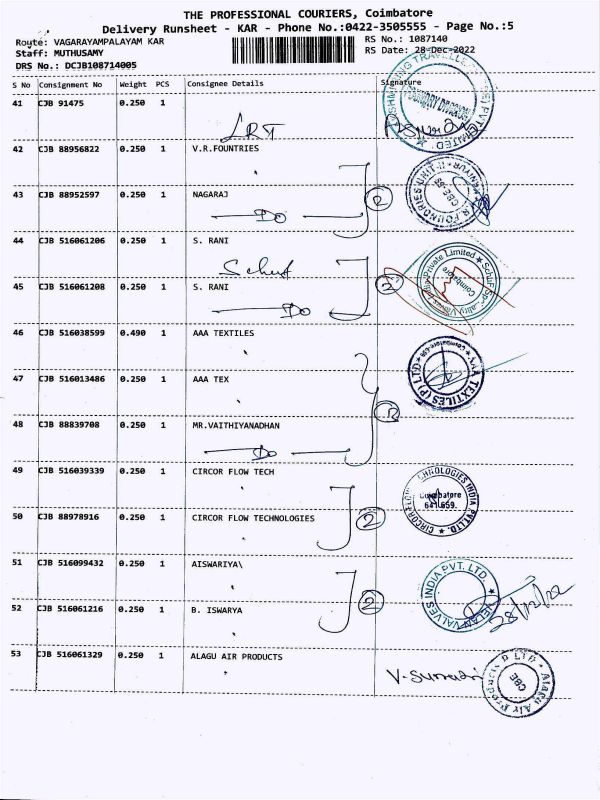 THE PROFESSIONAL COURIERS, Coimbatore
Delivery Runsheet - KAR - Phone No.:0422-3505555 - Page No.:5
Route: VAGARAYAMPALAYAM KAR RS No.: 1087140
Staff: MUTHUSAMY RS Date: 28-Dec-2022
DRS No.: DCJB108714005
S No Consignment No Weight PCS Consignee Details Signature
41 CJB 91475 0.250 1
LRT
42 CJB 88956822 0.250 1 V.R.FOUNTRIES
43 CJB 88952597 0.250 1 NAGARAJ
Do
2
44 CJB 516061206 0.250 1 S. RANI
Schuf
45 CJB 516061208 0.250 1 S. RANI
Do
2
46 CJB 516038599 0.490 1 AAA TEXTILES
AAA TEXTILES (P) LTD
47 CJB 516013486 0.250 1 AAA TEX
48 CJB 88839708 0.250 1 MR.VAITHIYANADHAN
Do
49 CJB 516039339 0.250 1 CIRCOR FLOW TECH
Coimbatore
641 659.
50 CJB 88978916 0.250 1 CIRCOR FLOW TECHNOLOGIES
2
51 CJB 516099432 0.250 1 AISWARIYA\
VALVES INDIA PVT. LTD.
2
28/12/22
52 CJB 516061216 0.250 1 B. ISWARYA
53 CJB 516061329 0.250 1 ALAGU AIR PRODUCTS
Alagu Air Products P LTD
CBE